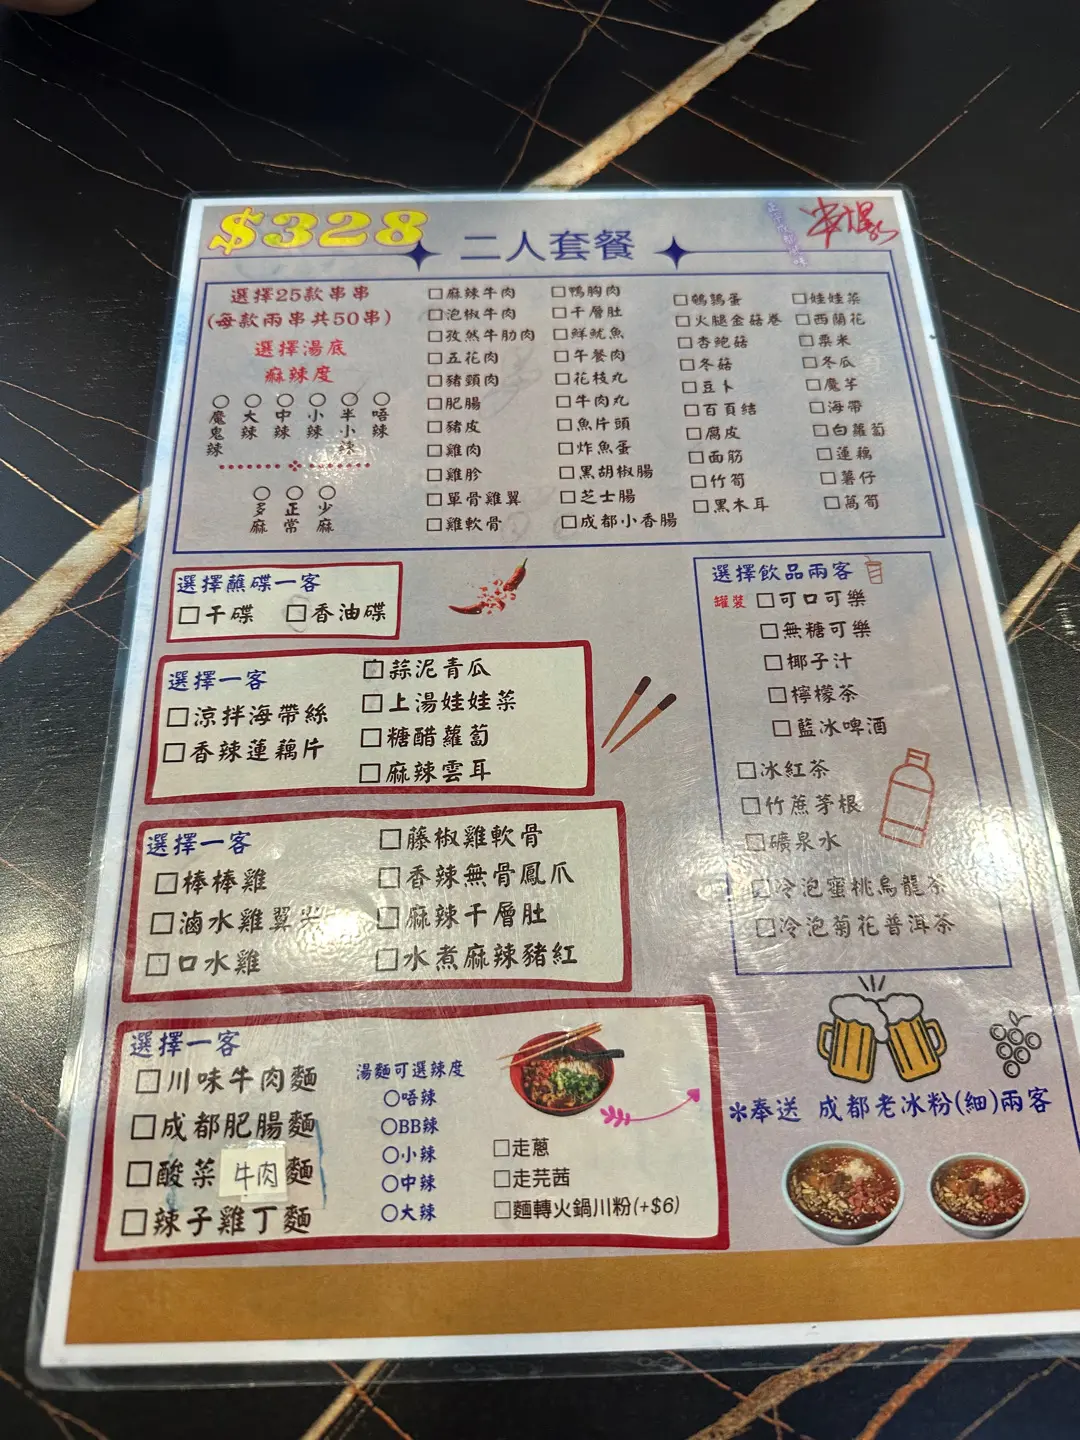 $328
二人套餐
串爆
選擇25款串串
(每款兩串共50串)
選擇湯底
麻辣度
魔鬼辣
大辣
中辣
小辣
半小辣
唔辣
多麻
正常
少麻
麻辣牛肉
泡椒牛肉
孜然牛肋肉
五花肉
豬頸肉
肥腸
豬皮
雞肉
雞胗
單骨雞翼
雞軟骨
鴨胸肉
千層肚
鮮魷魚
午餐肉
花枝丸
牛肉丸
魚片頭
炸魚蛋
黑胡椒腸
芝士腸
成都小香腸
鵪鶉蛋
火腿金菇卷
杏鮑菇
冬菇
豆卜
百頁結
腐皮
面筋
竹筍
黑木耳
娃娃菜
西蘭花
粟米
冬瓜
魔芋
海帶
白蘿蔔
蓮藕
薯仔
萵筍
選擇蘸碟一客
干碟 香油碟
選擇一客
涼拌海帶絲
香辣蓮藕片
蒜泥青瓜
上湯娃娃菜
糖醋蘿蔔
麻辣雲耳
選擇一客
棒棒雞
滷水雞翼尖
口水雞
藤椒雞軟骨
香辣無骨鳳爪
麻辣千層肚
水煮麻辣豬紅
選擇一客
川味牛肉麵
成都肥腸麵
酸菜牛肉麵
辣子雞丁麵
湯麵可選辣度
唔辣
BB辣
小辣
中辣
大辣
走蔥
走芫茜
麵轉火鍋川粉(+$6)
選擇飲品兩客
罐裝 可口可樂
無糖可樂
椰子汁
檸檬茶
藍冰啤酒
冰紅茶
竹蔗茅根
礦泉水
冷泡蜜桃烏龍茶
冷泡菊花普洱茶
*奉送 成都老冰粉(細)兩客